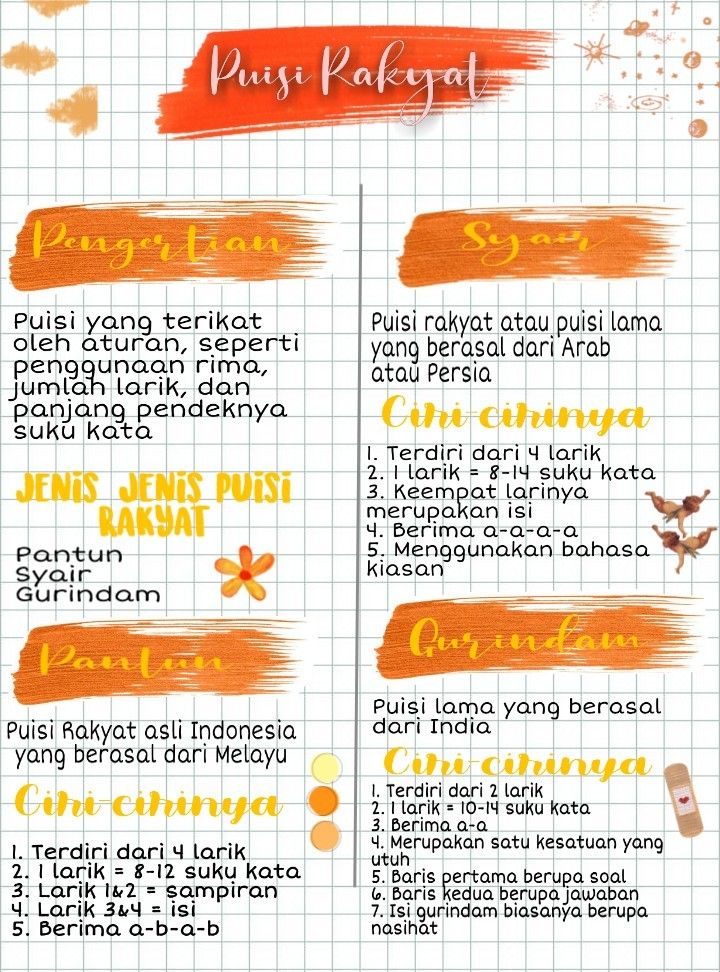 Puisi Rakyat
Pengertian
Puisi yang terikat
oleh aturan, seperti
penggunaan rima,
jumlah larik, dan
panjang pendeknya
suku kata
JENIS JENIS PUISI
RAKYAT
Pantun
Syair
Gurindam
Pantun
Puisi Rakyat asli Indonesia
yang berasal dari Melayu
Ciri-cirinya
1. Terdiri dari 4 larik
2. 1 larik = 8-12 suku kata
3. Larik 1&2 = sampiran
4. Larik 3&4 = isi
5. Berima a-b-a-b
Syair
Puisi rakyat atau puisi lama
yang berasal dari Arab
atau Persia
Ciri-cirinya
1. Terdiri dari 4 larik
2. 1 larik = 8-14 suku kata
3. Keempat larinya
merupakan isi
4. Berima a-a-a-a
5. Menggunakan bahasa
kiasan
Gurindam
Puisi lama yang berasal
dari India
Ciri-cirinya
1. Terdiri dari 2 larik
2. 1 larik = 10-14 suku kata
3. Berima a-a
4. Merupakan satu kesatuan yang
utuh
5. Baris pertama berupa soal
6. Baris kedua berupa jawaban
7. Isi gurindam biasanya berupa
nasihat